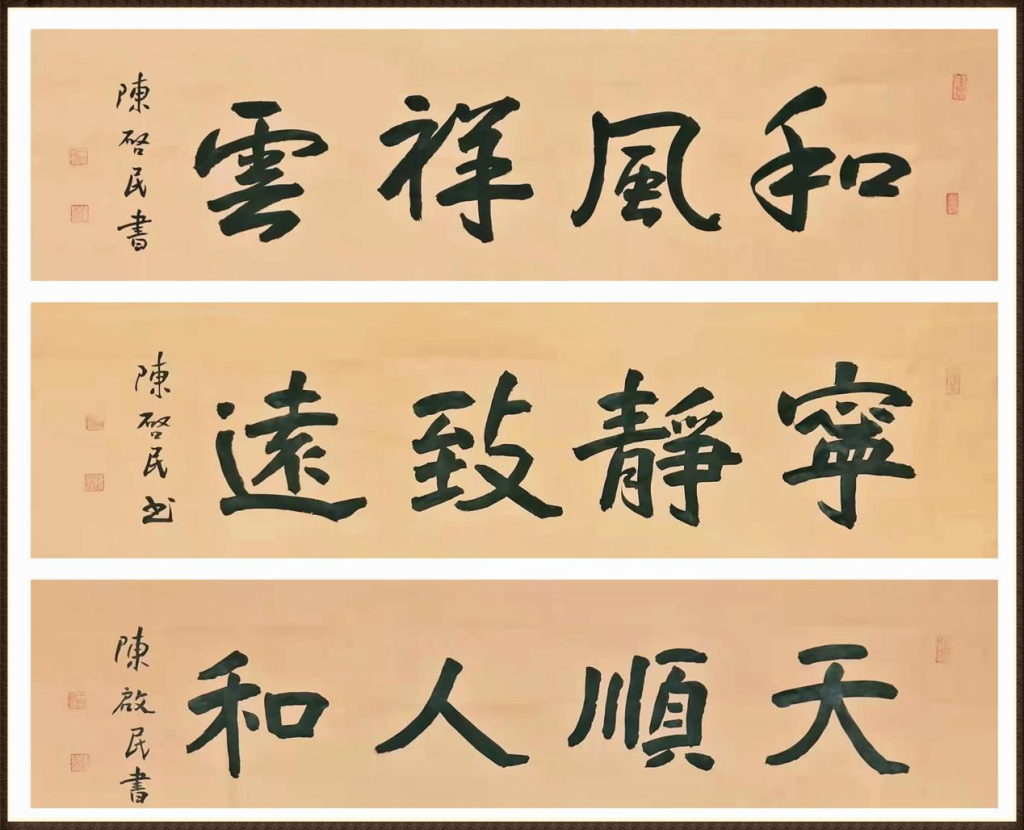 和風祥雲
陳啓民書
寧靜致遠
陳啓民书
天順人和
陳啟民書